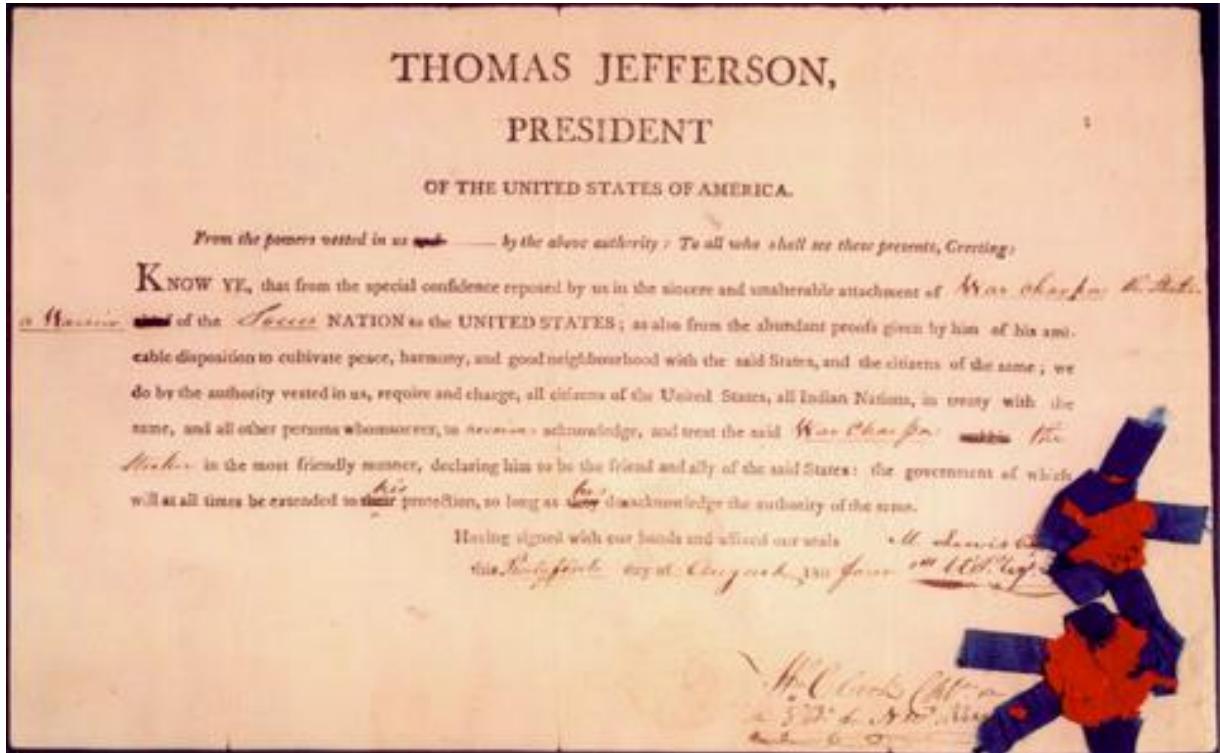 THOMAS JEFFERSON,
PRESIDENT
OF THE UNITED STATES OF AMERICA.
From the powers vested in us by the above authority: To all who shall see these presents, Greeting:
KNOW YE, that from the special confidence reposed by us in the sincere and unalterable attachment of War charpa the
a Warrior of the NATION to the UNITED STATES; as also from the abundant proofs given by him of his ami-
cable disposition to cultivate peace, harmony, and good neighbourhood with the said States, and the citizens of the same; we
do by the authority vested in us, require and charge, all citizens of the United States, all Indian Nations, in treaty with the
same, and all other persons whomsoever, to acknowledge, and treat the said War Charpa the
in the most friendly manner, declaring him to be the friend and ally of the said States: the government of which
will at all times be extended to their his protection, so long as they he do acknowledge the authority of the same.
Having signed with our hands and affixed our seals M. Lewis
this day of August 180 four
Wm Clark